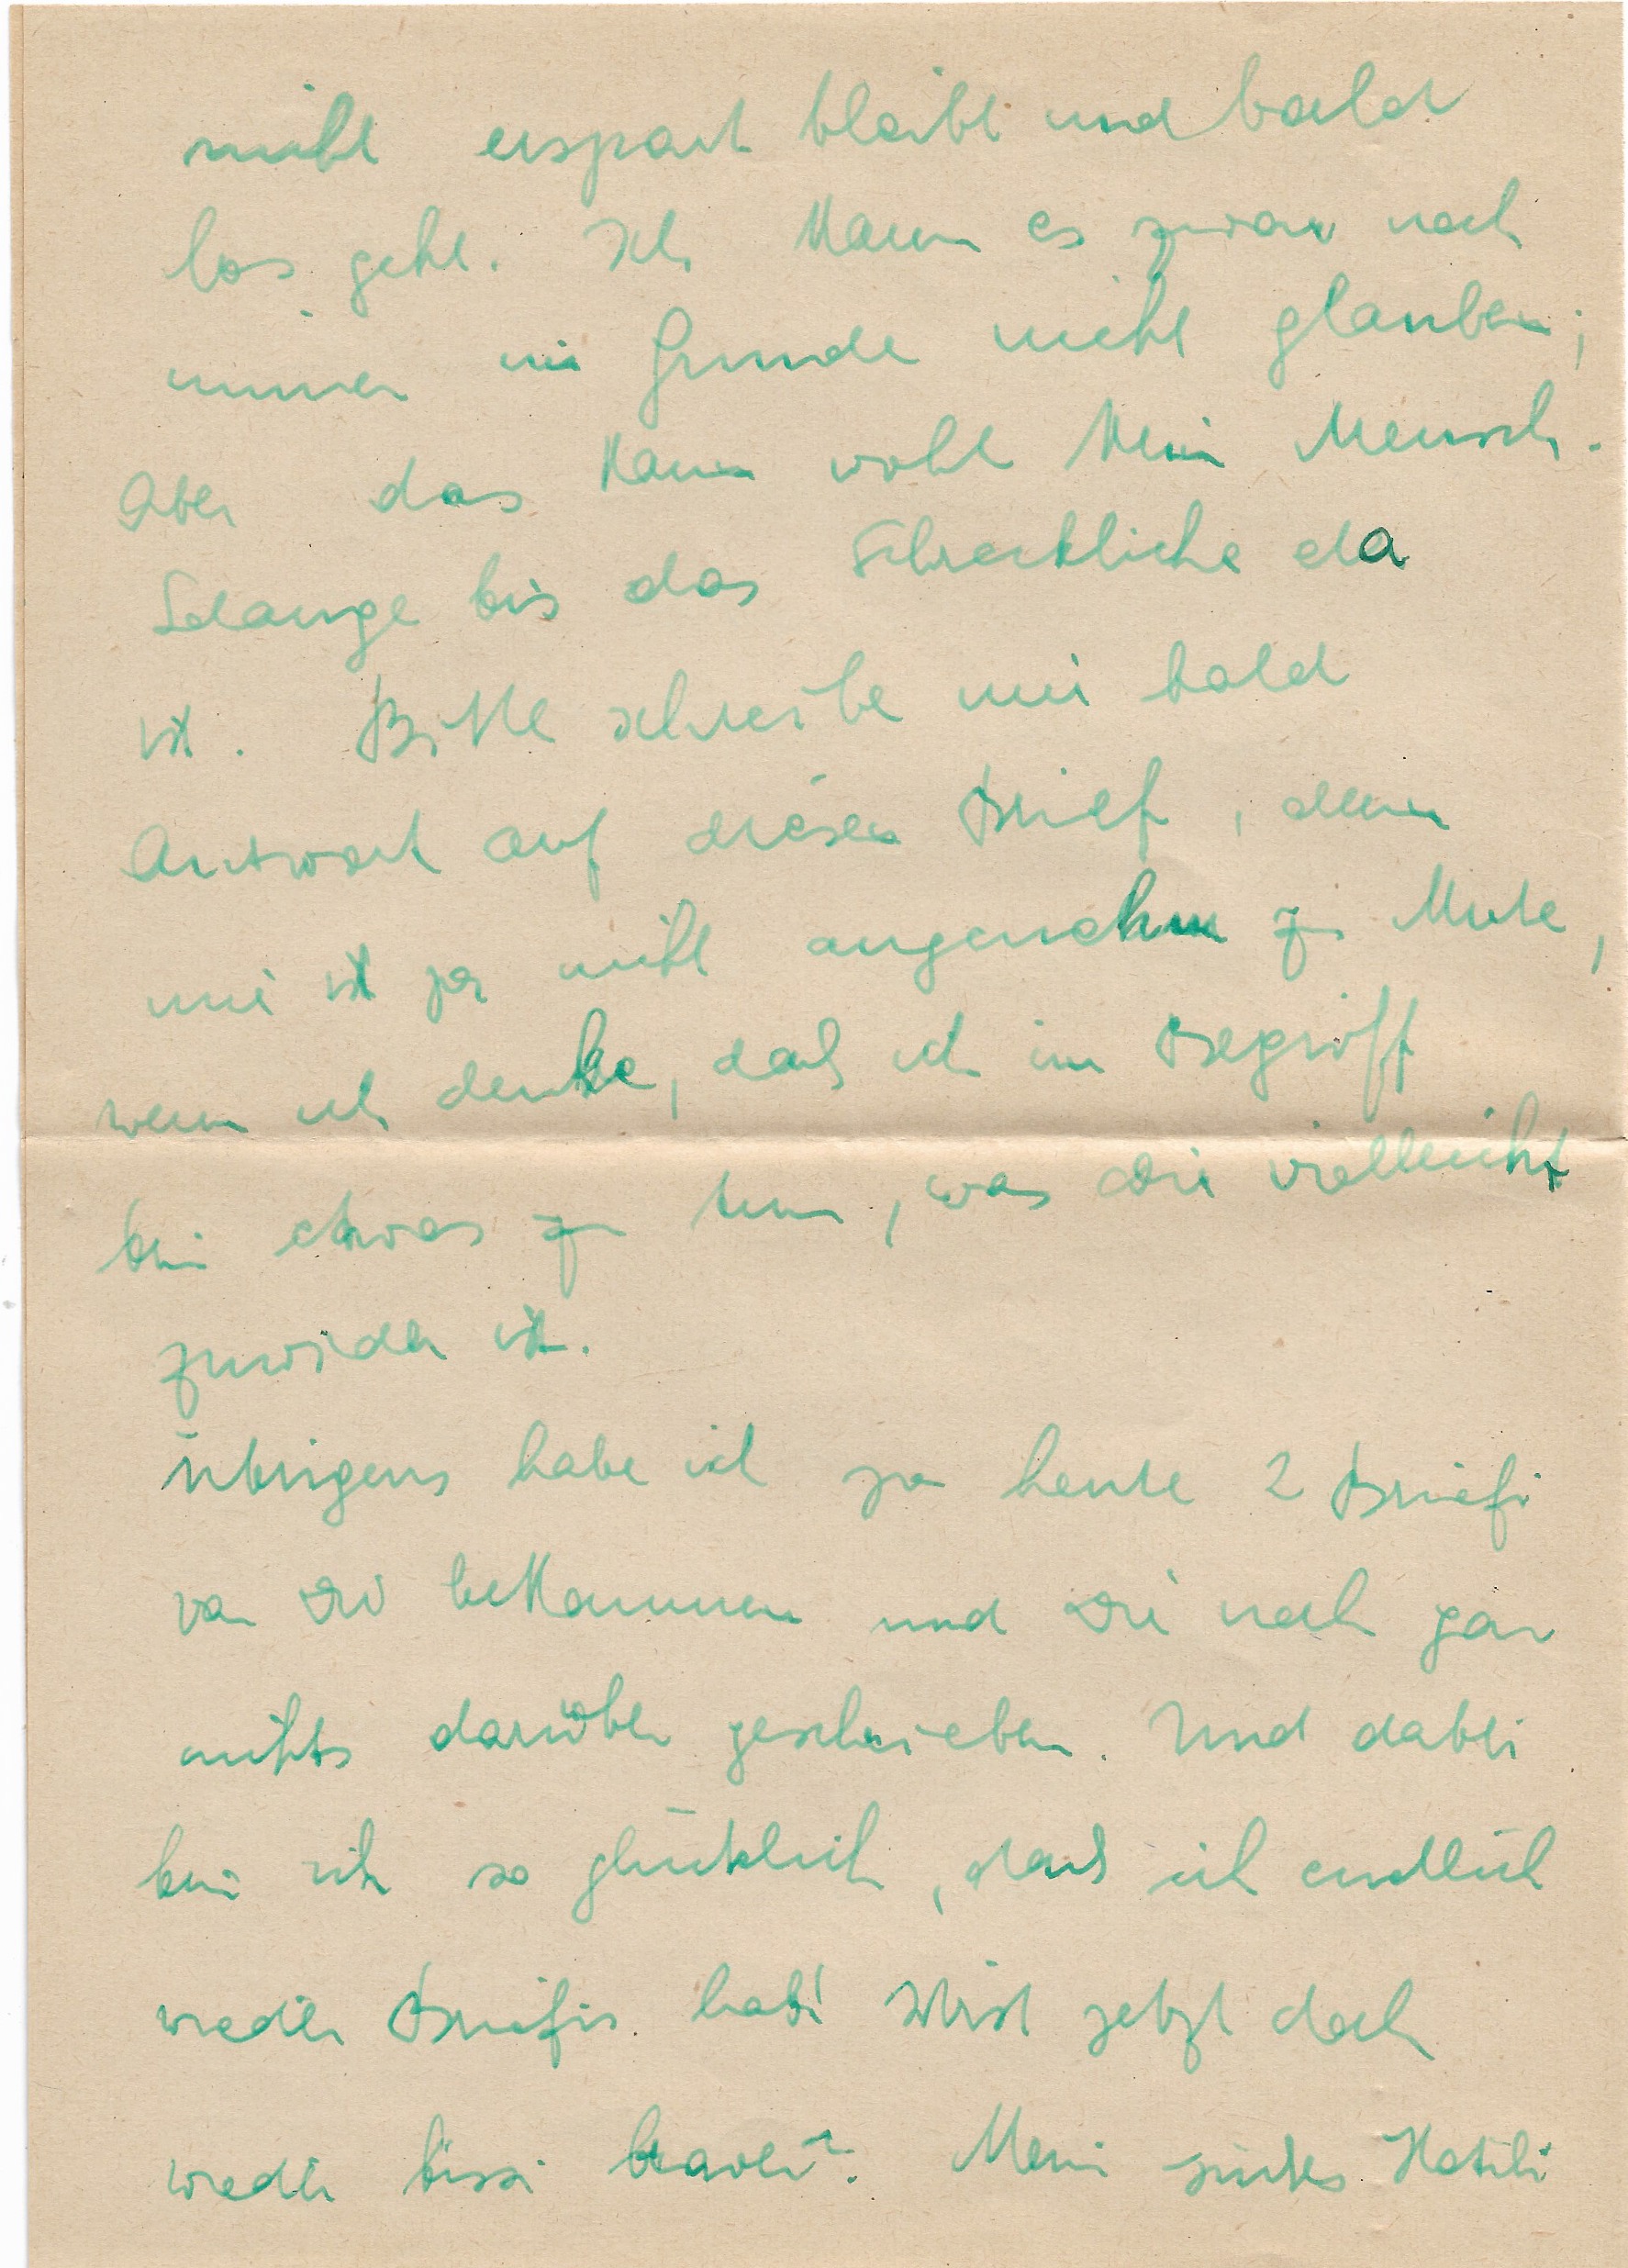 nicht erspart bleibt und bald
los geht. Ich kann es zwar noch
immer im Grunde nicht glauben;
Aber das kann wohl kein Mensch.
Solange bis das Schreckliche da
ist. Bitte schreibe mir bald
Antwort auf diesen Brief, denn
mir ist ja nicht angenehm zu Mute,
wenn ich denke, daß ich im Begriff
bin etwas zu tun, was Dir vielleicht
zuwider ist.
Übrigens habe ich ja heute 2 Briefi
von Dir bekommen und Dir noch gar
nichts darüber geschrieben. Und dabei
bin ich so glücklich, daß ich endlich
wieder Briefis hab! Wirst jetzt doch
wieder bissi braver? Mein